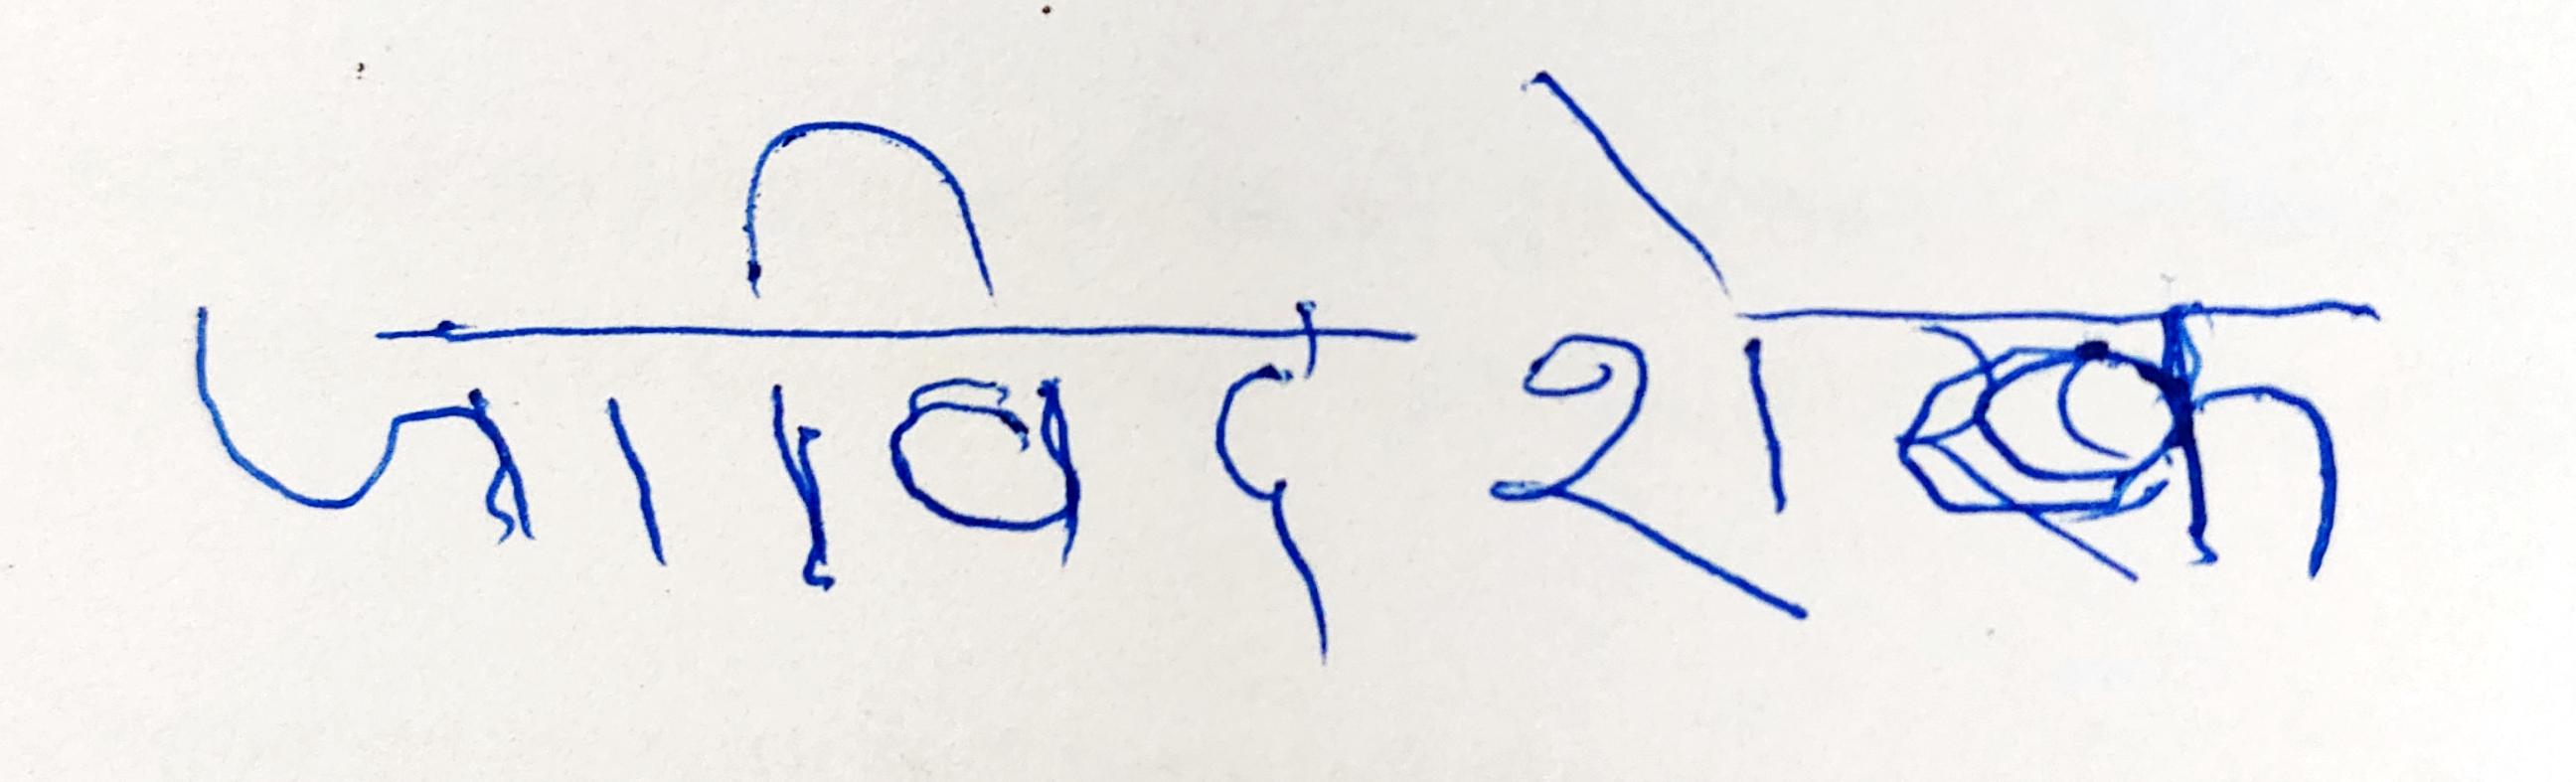 जाविद शेक